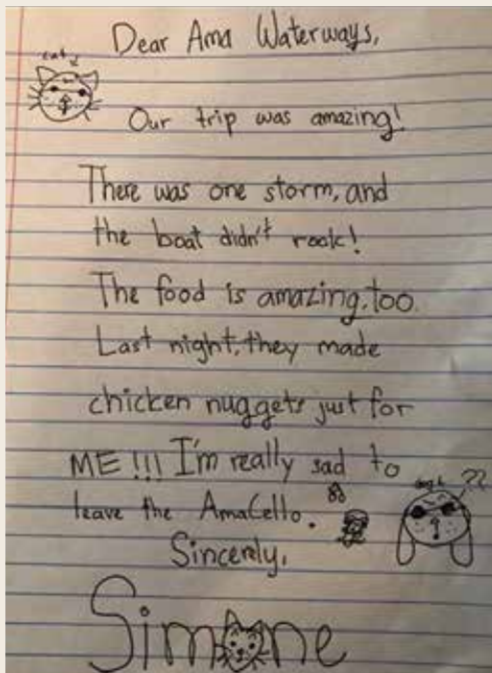 Dear Ama Waterways,
cat
Our trip was amazing!
There was one storm, and
the boat didn't rock!
The food is amazing, too.
Last night, they made
chicken nuggets just for
ME!!! I'm really sad to
leave the AmaCello.
??
Sincerely,
Simone